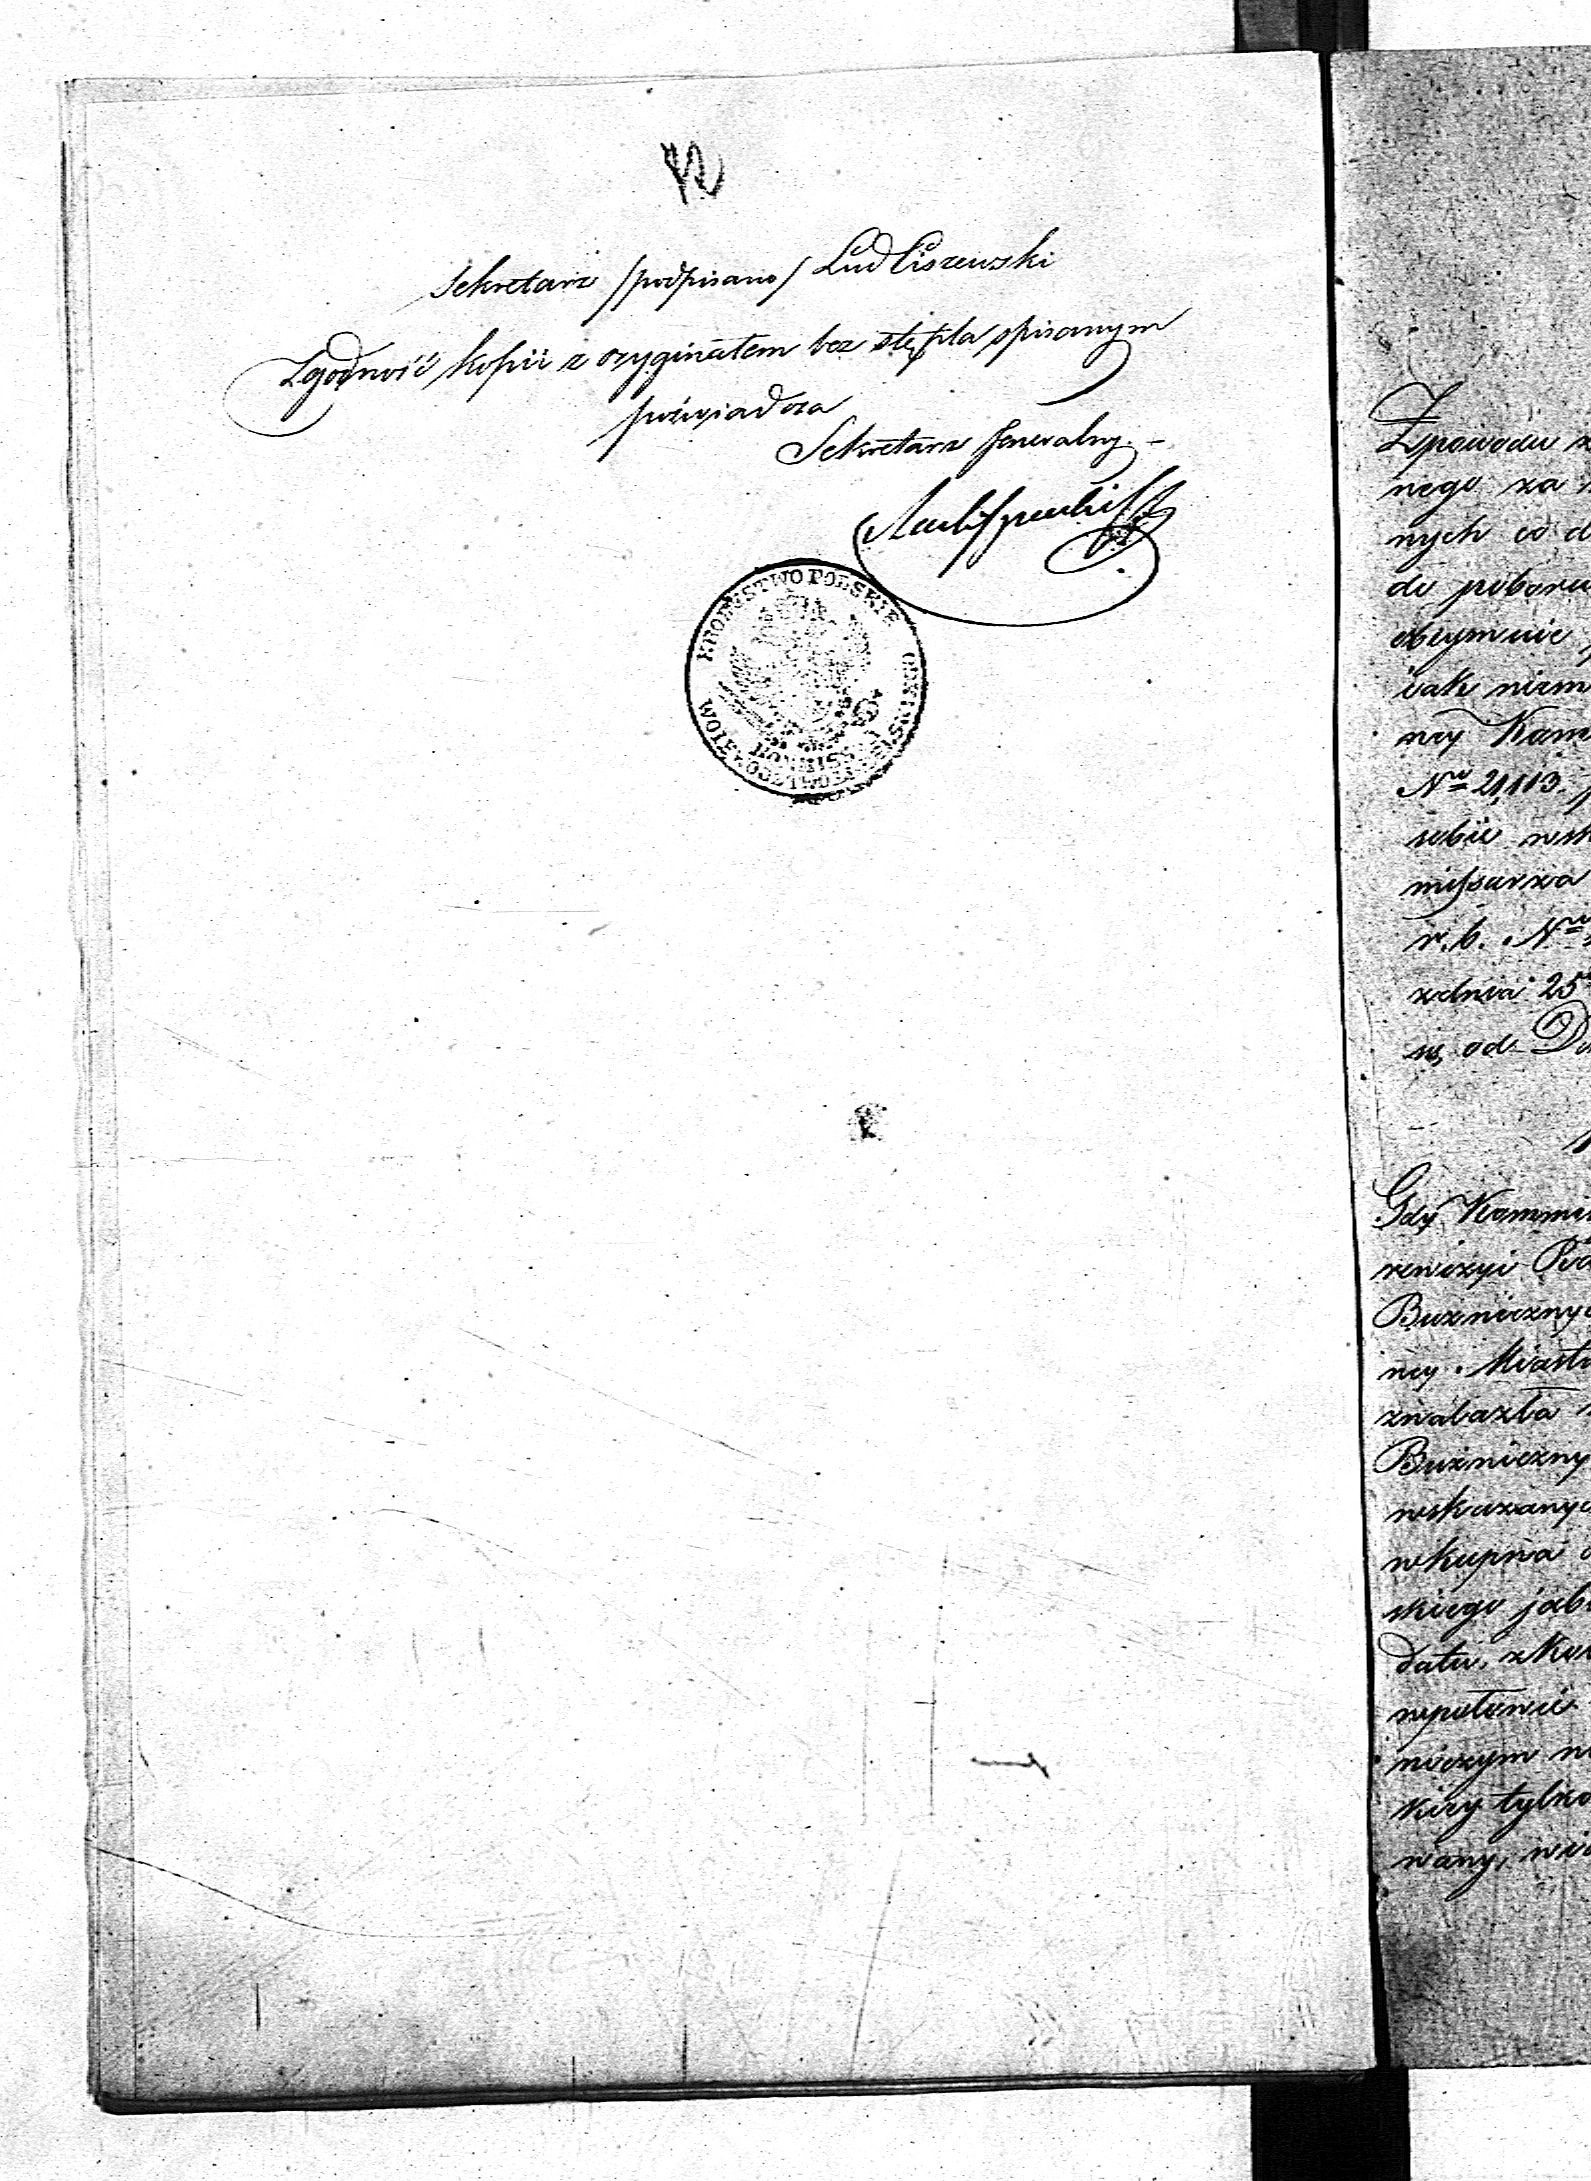 Sekretarz /podpisano/ Lud Ciszewski
Zgodność kopii z oryginałem bez stępla spisanym
poświadcza
Sekretarz Jeneralny. –
KROLESTWO POLSKIE
WOIEWODZTWO
KOMMISS
Zpowodu
nego za
nych co d
do poboru
obeymuie
iak niem
ney Kam
No 21,113.
sobie wsk
missarza
r. b. No
zdnia 25
w, od Du
Gdy Kommi
rewizyi Po
Buznicznyc
ney Miasta
znalazła
Buzniczny
wskazanyc
wkupna
skiego jab
datu, z Ko
wpołowie
niczym n
kiey tylko
wany, wi